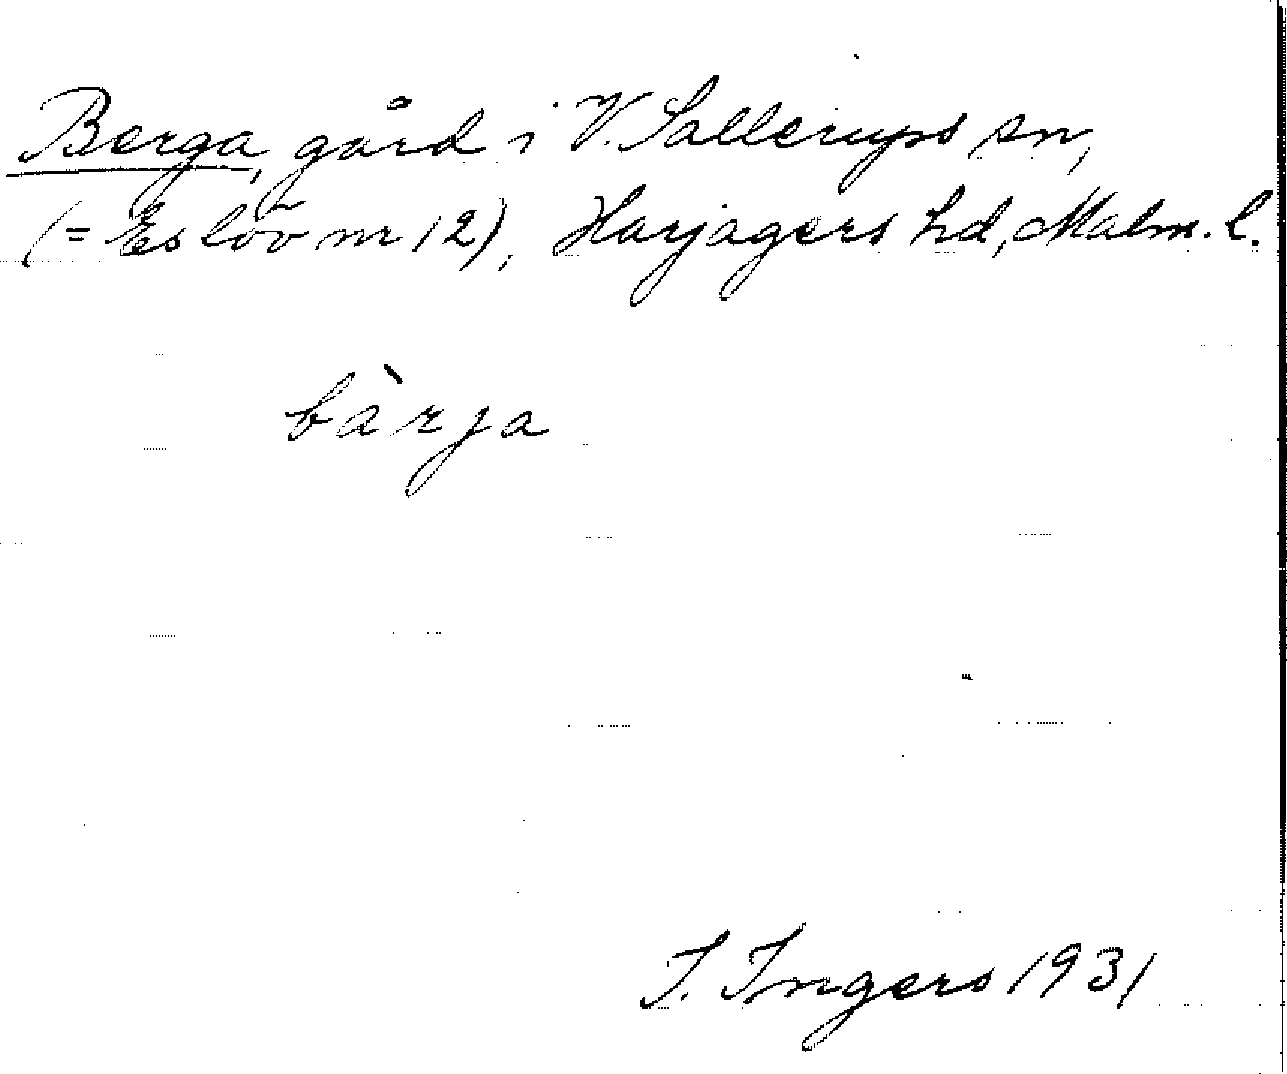 Berga, gård i V. Sallerups sn,
(= Eslöv nr 12), Harjagers hd, Malm. l.
bàrja
I. Ingers 1931